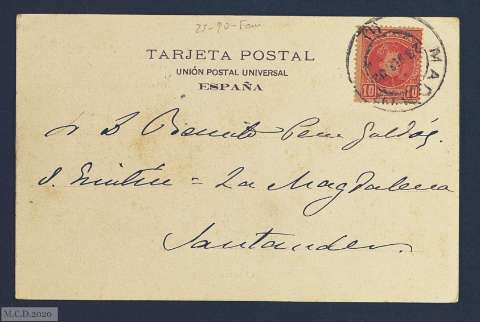 25-90-Fam
TARJETA POSTAL
UNIÓN POSTAL UNIVERSAL
ESPAÑA
10 10
MAD
D. B Benito Perez Galdós.
S. Quintín = La Magdalena
Santander.
M.C.D.2020